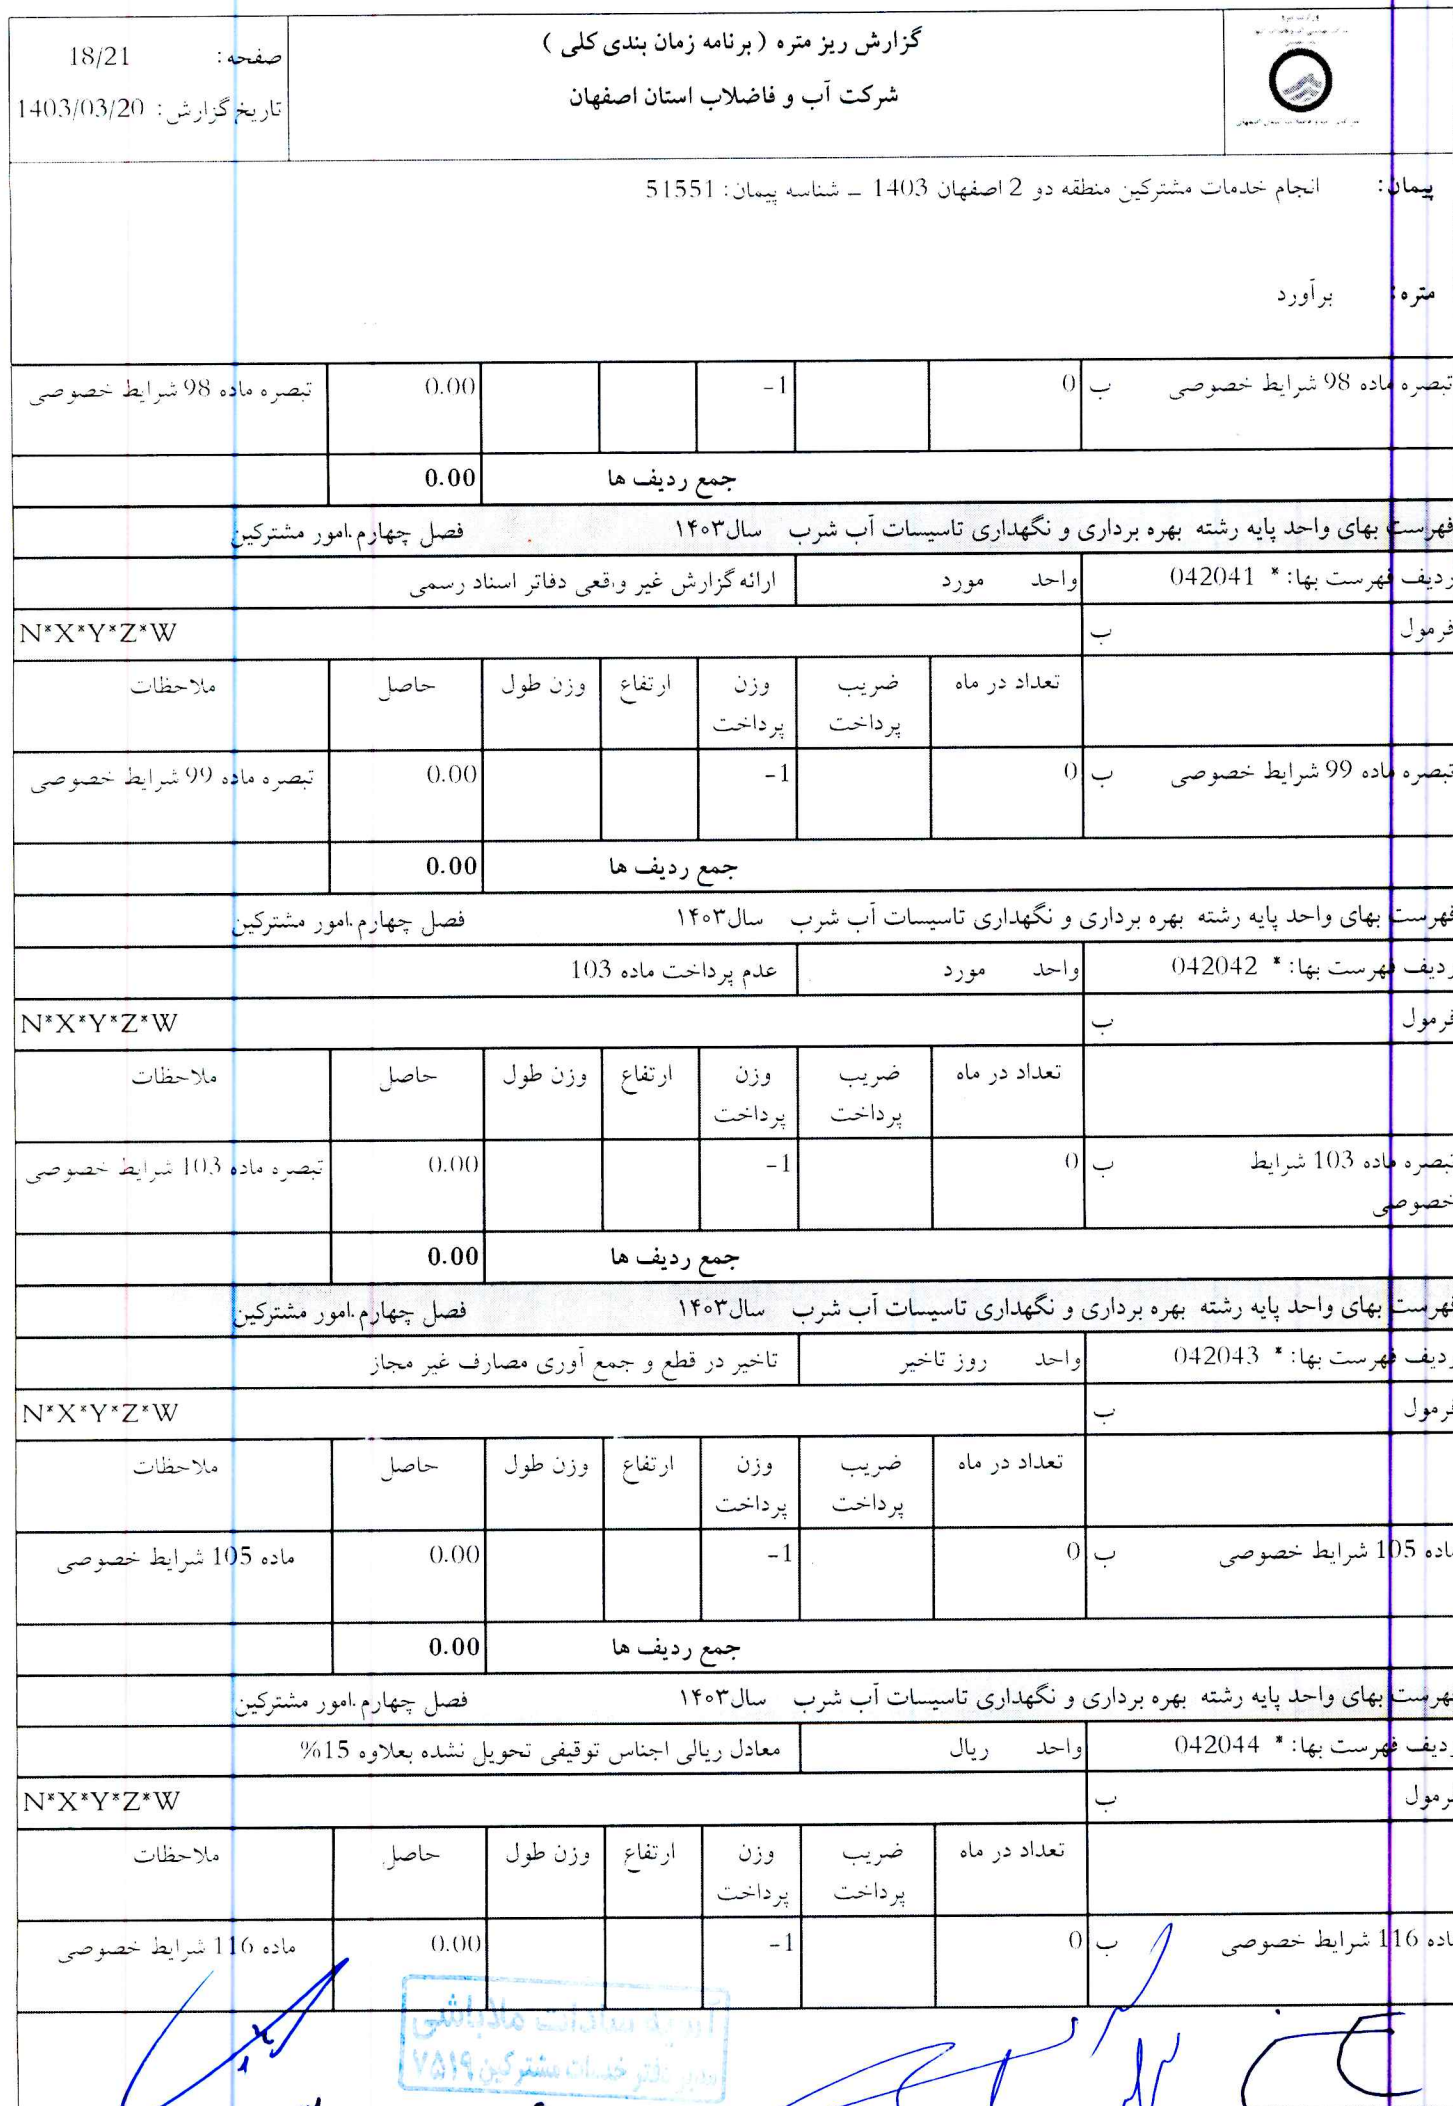 گزارش ریز متره ( برنامه زمان بندی کلی )
شرکت آب و فاضلاب استان اصفهان
صفحه: 18/21
تاریخ گزارش: 1403/03/20
پیمان: انجام خدمات مشترکین منطقه دو 2 اصفهان 1403 ـ شناسه پیمان: 51551
متره: برآورد
تبصره ماده 98 شرایط خصوصی ب 0 -1 0.00 تبصره ماده 98 شرایط خصوصی
جمع ردیف ها 0.00
فهرست بهای واحد پایه رشته بهره برداری و نگهداری تاسیسات آب شرب سال۱۴۰۳ فصل چهارم.امور مشترکین
ردیف فهرست بها: * 042041 واحد مورد ارائه گزارش غیر واقعی دفاتر اسناد رسمی
فرمول ب N*X*Y*Z*W
تعداد در ماه ضریب پرداخت وزن پرداخت ارتفاع وزن طول حاصل ملاحظات
تبصره ماده 99 شرایط خصوصی ب 0 -1 0.00 تبصره ماده 99 شرایط خصوصی
جمع ردیف ها 0.00
فهرست بهای واحد پایه رشته بهره برداری و نگهداری تاسیسات آب شرب سال۱۴۰۳ فصل چهارم.امور مشترکین
ردیف فهرست بها: * 042042 واحد مورد عدم پرداخت ماده 103
فرمول ب N*X*Y*Z*W
تعداد در ماه ضریب پرداخت وزن پرداخت ارتفاع وزن طول حاصل ملاحظات
تبصره ماده 103 شرایط خصوصی ب 0 -1 0.00 تبصره ماده 103 شرایط خصوصی
جمع ردیف ها 0.00
فهرست بهای واحد پایه رشته بهره برداری و نگهداری تاسیسات آب شرب سال۱۴۰۳ فصل چهارم.امور مشترکین
ردیف فهرست بها: * 042043 واحد روز تاخیر تاخیر در قطع و جمع آوری مصارف غیر مجاز
فرمول ب N*X*Y*Z*W
تعداد در ماه ضریب پرداخت وزن پرداخت ارتفاع وزن طول حاصل ملاحظات
ماده 105 شرایط خصوصی ب 0 -1 0.00 ماده 105 شرایط خصوصی
جمع ردیف ها 0.00
فهرست بهای واحد پایه رشته بهره برداری و نگهداری تاسیسات آب شرب سال۱۴۰۳ فصل چهارم.امور مشترکین
ردیف فهرست بها: * 042044 واحد ریال معادل ریالی اجناس توقیفی تحویل نشده بعلاوه 15%
فرمول ب N*X*Y*Z*W
تعداد در ماه ضریب پرداخت وزن پرداخت ارتفاع وزن طول حاصل ملاحظات
ماده 116 شرایط خصوصی ب 0 -1 0.00 ماده 116 شرایط خصوصی
سادات ملاباشی
مدیر دفتر خدمات مشترکین ۷۵۱۹